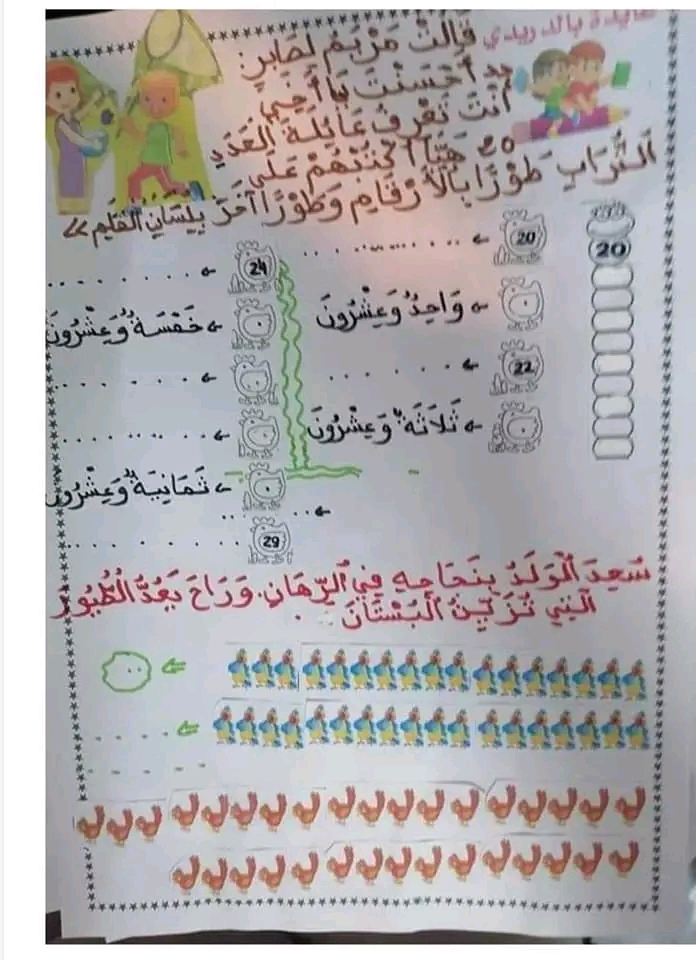 فايدة بالدريدي
قَالَتْ مَرْيَمُ لِصَابِرٍ:
>> أَحْسَنْتَ يَا أَخِي
أَنْتَ تَعْرِفُ عَائِلَةَ الْعَدَدِ
20 هَيَّا اكْتُبْهُمْ عَلَى
التُّرَابِ طَوْرًا بِالْأَرْقَامِ وَطَوْرًا آخَرَ بِلِسَانِ الْقَلَمِ <<
20
20
وَاحِدٌ وَعِشْرُونَ
22
ثَلَاثَةٌ وَعِشْرُونَ
24
خَمْسَةٌ وَعِشْرُونَ
ثَمَانِيَةٌ وَعِشْرُونَ
29
سَعِدَ الْوَلَدُ بِنَجَاحِهِ فِي الرِّهَانِ. وَرَاحَ يَعُدُّ الطُّيُورَ
الَّتِي تُزَيِّنُ الْبُسْتَانَ.